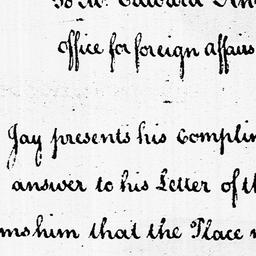 To Mr. Edward
Office for foreign affairs
Jay presents his complim
answer to his Letter of th
ms him that the Place